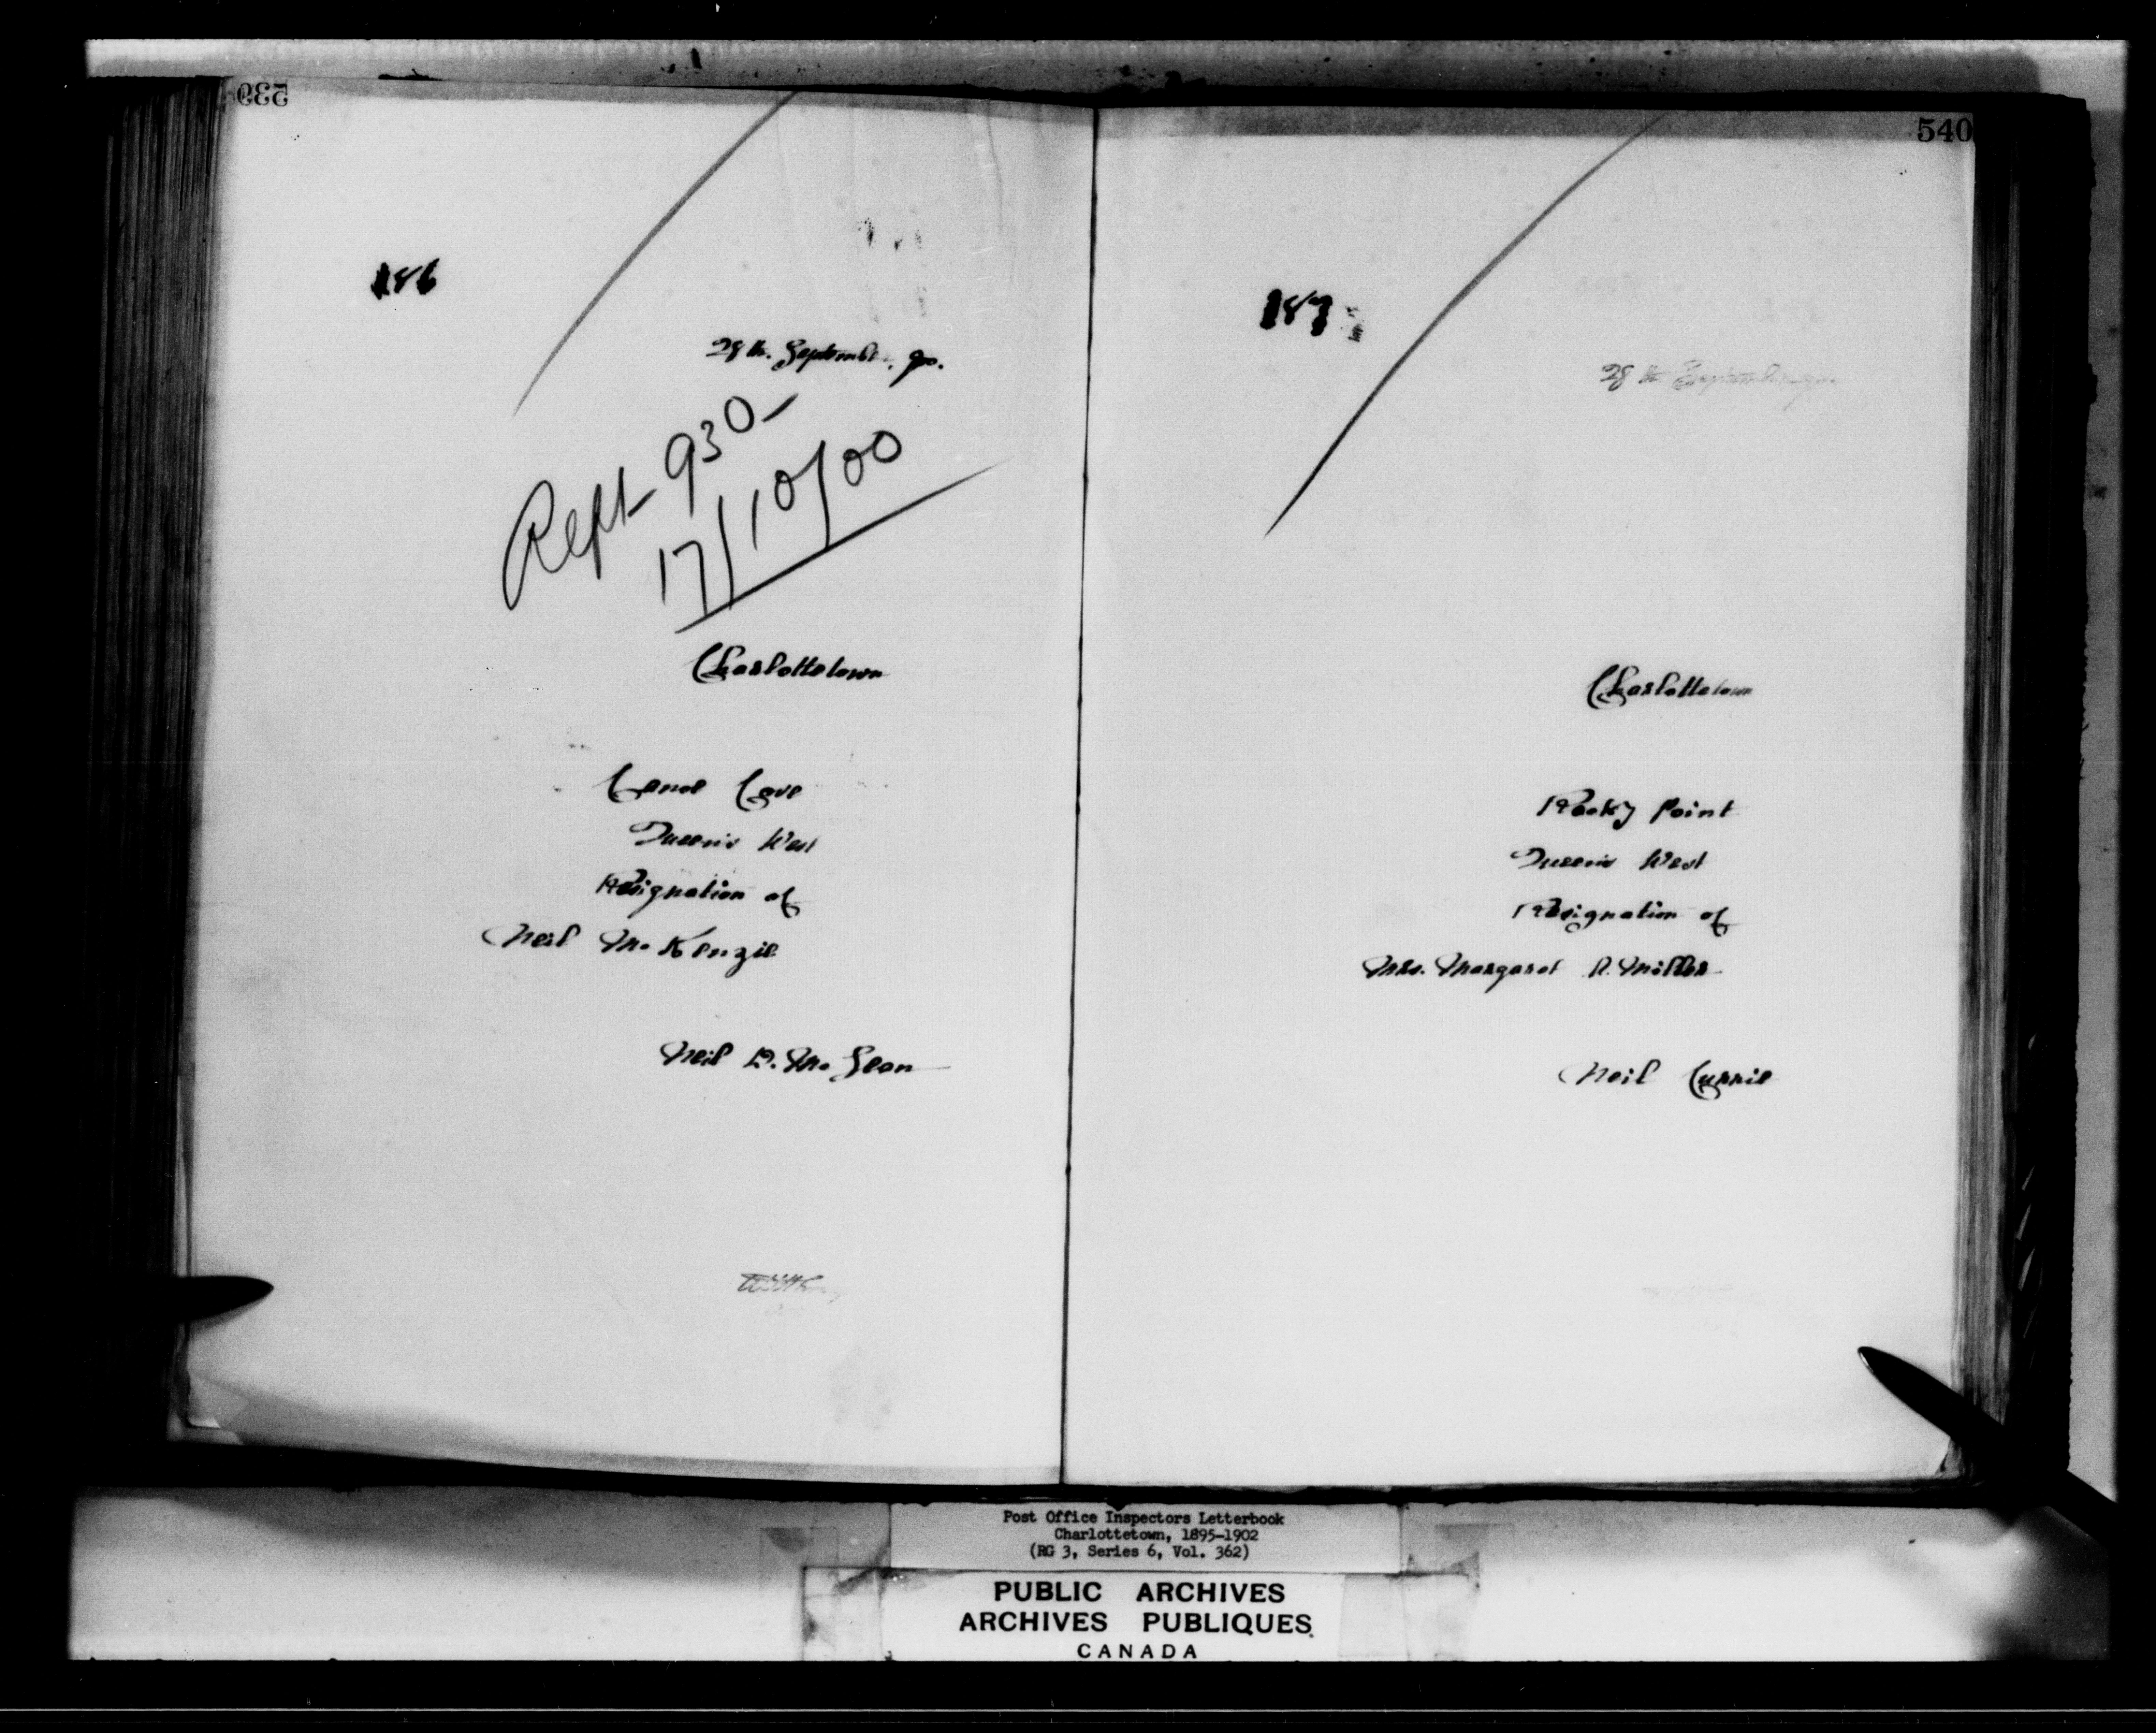 539
186
28th. September, 900.
Rept 930-
17/10/00
Charlottetown
Canoe Cove
Queen's West
Resignation of
Neil McKenzie
Neil D. McLean
540
187
28th September 900
Charlottetown
Rocky Point
Queen's West
Resignation of
Mrs. Margaret A. Miller
Neil Currie
Post Office Inspectors Letterbook
Charlottetown, 1895-1902
(RG 3, Series 6, Vol. 362)
PUBLIC ARCHIVES
ARCHIVES PUBLIQUES
CANADA